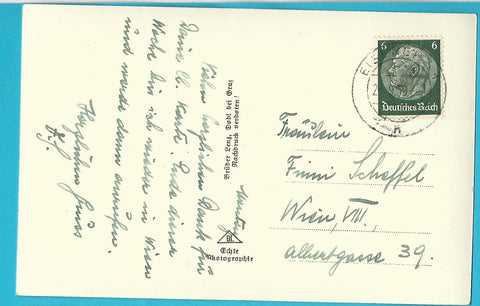 Montag
Vielen herzlichen Dank für
Deine lb. Karte. Ende dieser
Woche bin ich wieder in Wien
und werde dann anrufen.
Herzlichen Gruss
Brüder Lenz, Dobl bei Graz
Nachdruck verboten!
BL
Echte
Photographie
6 6
Deutsches Reich
Fräulein
Finni Scheffel
Wien, VIII.,
Albertgasse 39.